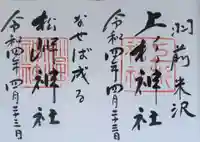 羽前米沢
上杉神社
令和四年四月二十三日
なせば成る
松岬神社
令和四年四月二十三日